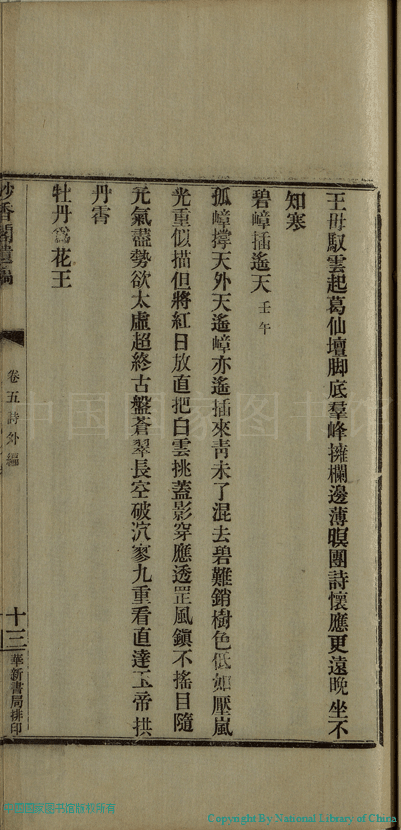 王母馭雲起葛仙壇脚底羣峰擁欄邊薄暝團詩懷應更遠晚坐不
知寒
碧嶂插遙天 壬午
孤嶂撐天外天遙嶂亦遙插來靑未了混去碧難銷樹色低如壓嵐
光重似描但將紅日放直把白雲挑蓋影穿應透罡風鎭不搖目隨
元氣盡勢欲太虛超終古盤蒼翠長空破泬寥九重看直達玉帝拱
丹霄
牡丹爲花王
香閣遺稿
卷五詩外編
十三
華新書局排印
中国国家图
中国国家图书馆版权所有
Copyright By National Library of China